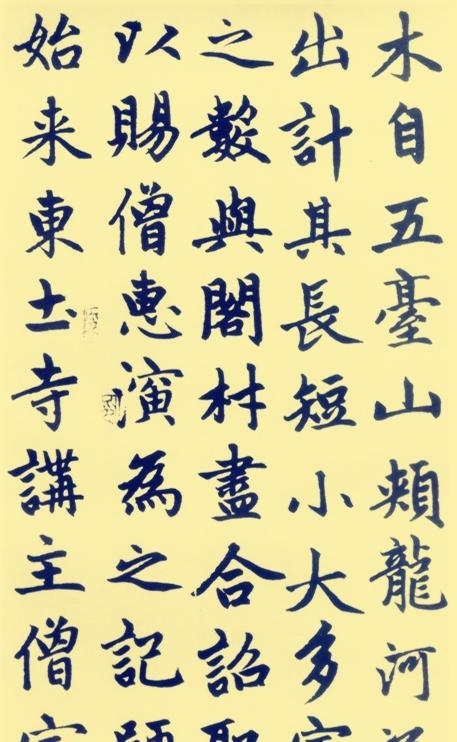 木自五臺山頰龍河
出計其長短小大多
之數與閣材盡合詔
以賜僧惠演為之記
始来東土寺講主僧